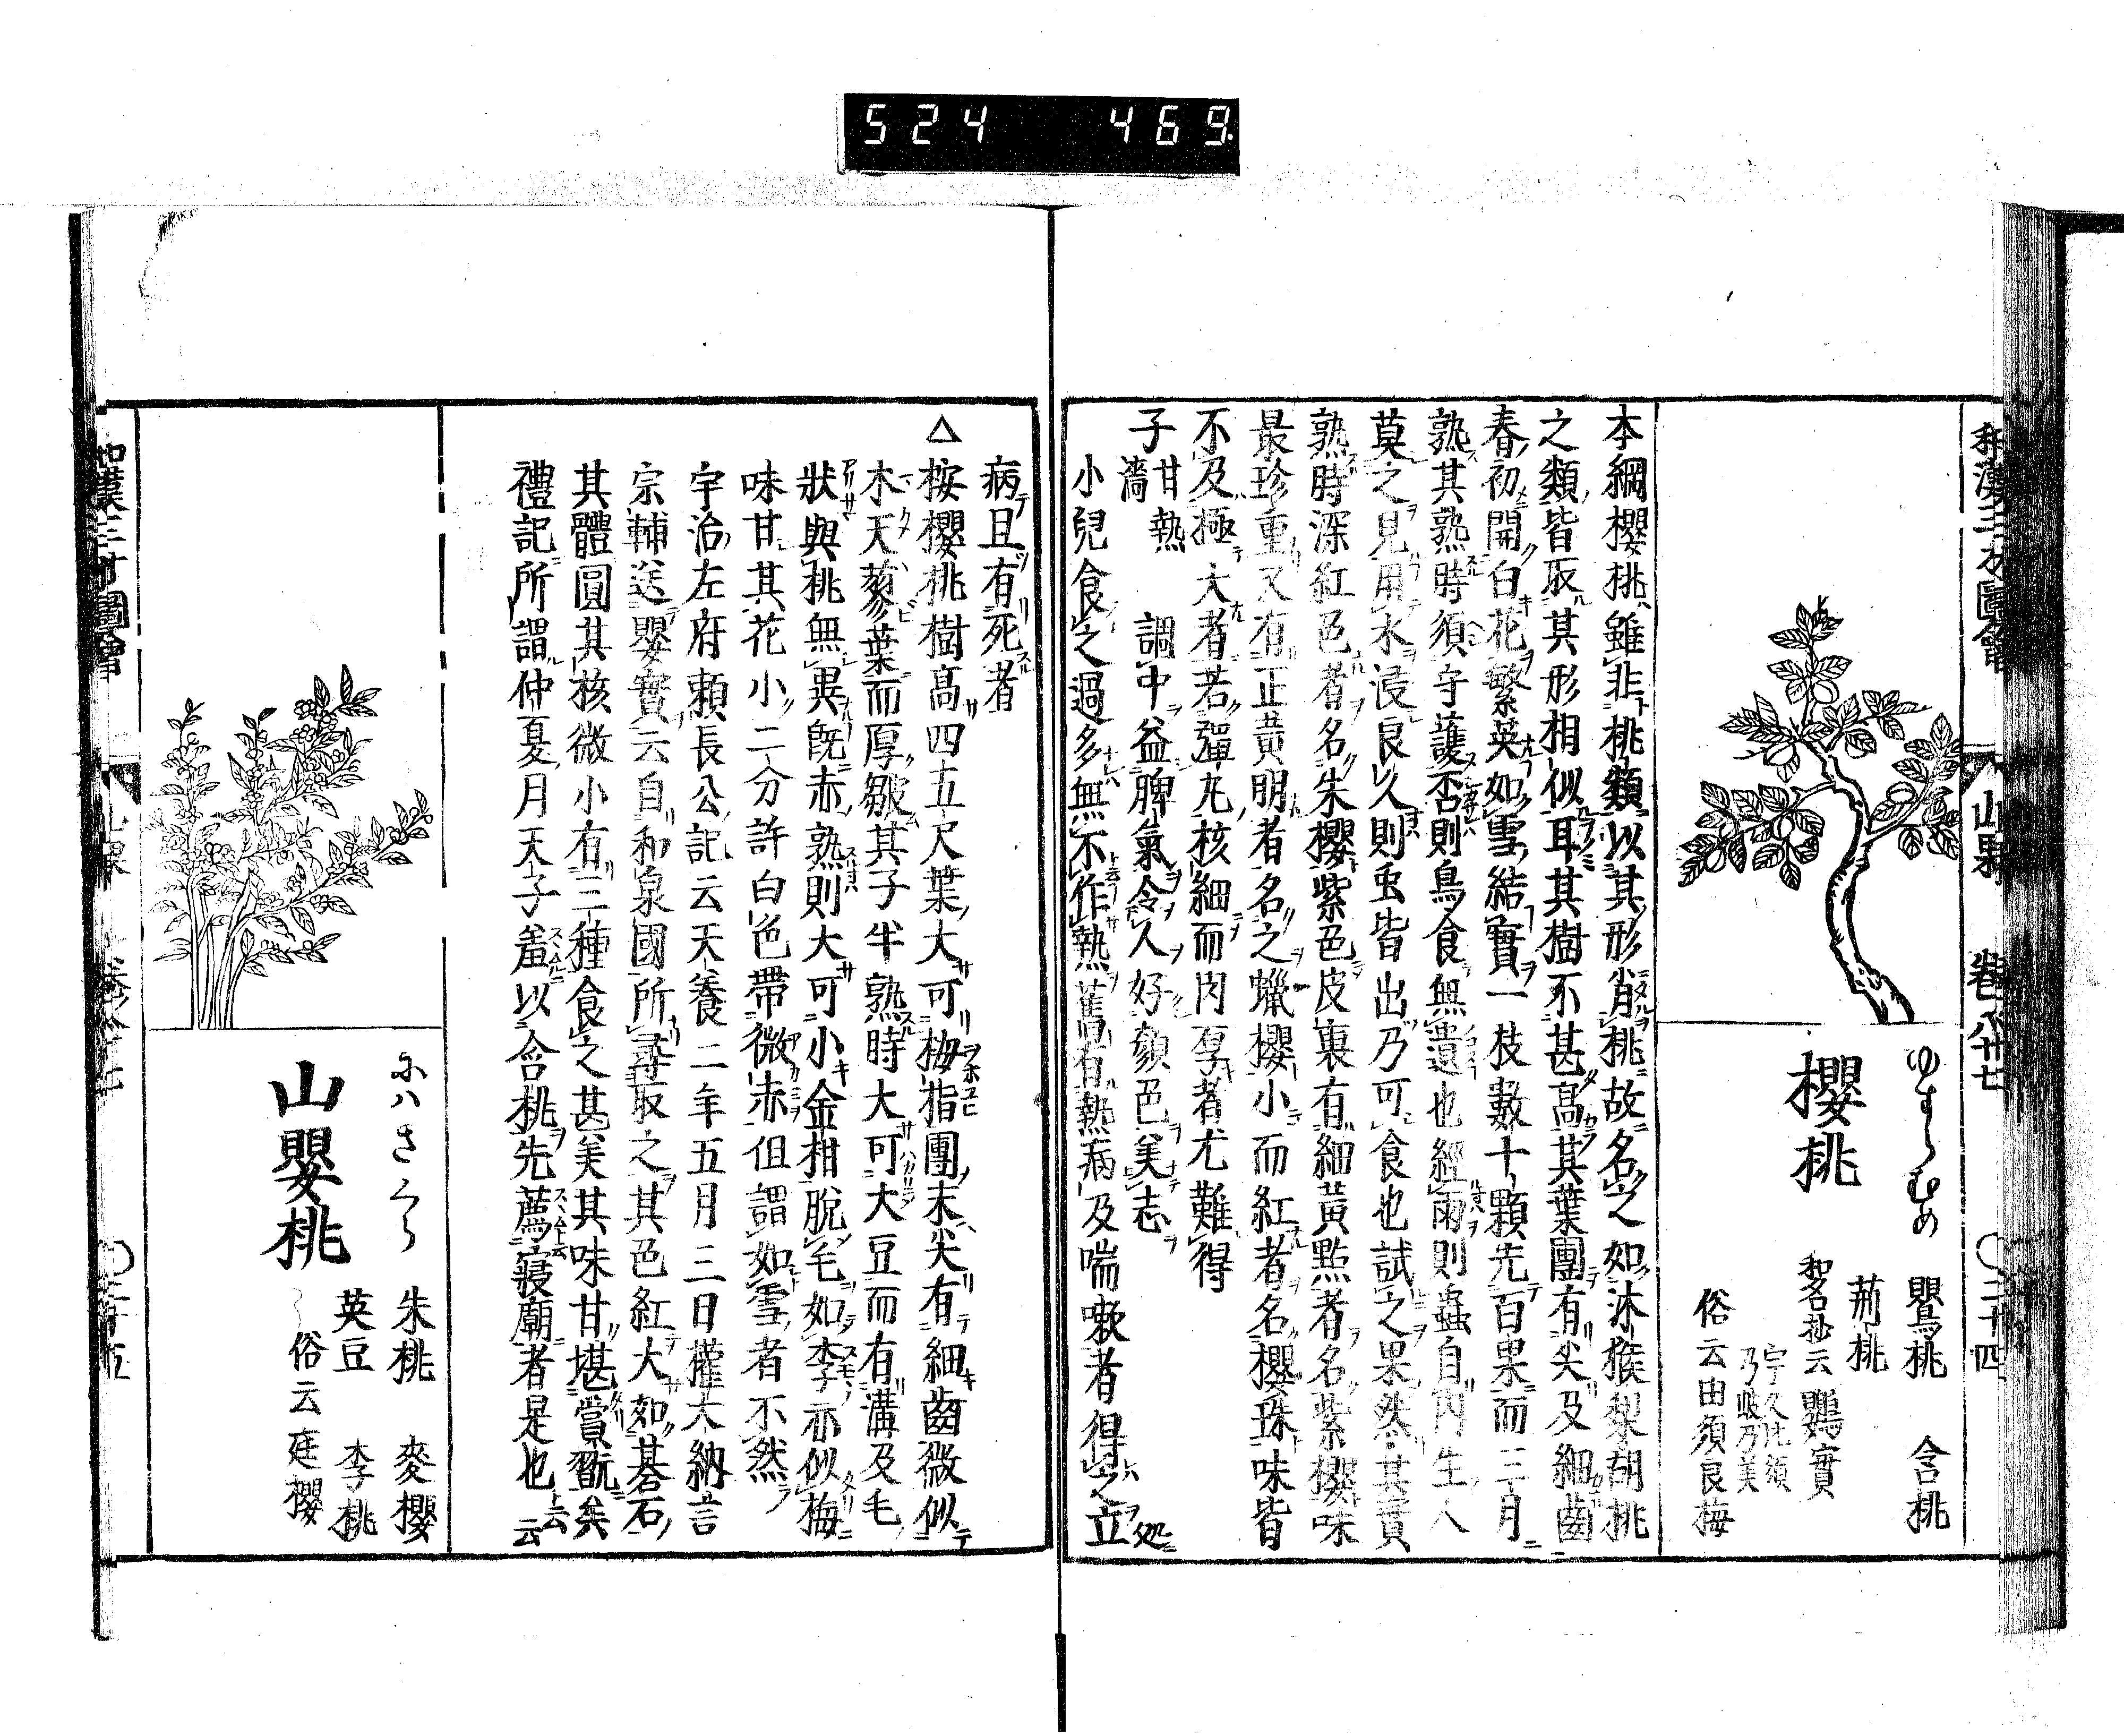 524 469
和漢三才圖會
山果
卷八十七
〇二十四
ゆすらむめ
櫻桃
鸎桃 含桃
荊桃
和名抄云鸎實
宇久比須
乃岐乃美
俗云由須良梅
本綱櫻桃雖非桃類以其形肖桃故名之如沐猴梨胡桃
之類皆取其形相似耳其樹不甚高其葉團有尖及細齒
春初開白花繁英如雪結實一枝數十顆先百果而三月
熟其熟時須守護否則鳥食無遺也經雨則蟲自內生人
莫之見用水浸良久則虫皆出乃可食也試之果然其實
熟時深紅色者名朱櫻紫色皮裏有細黃點者名紫櫻味
最珍重又有正黃明者名之蠟櫻小而紅者名櫻珠味皆
不及極大者若彈丸核細而肉厚者尤難得
子
甘熱
濇
調中益脾氣令人好顏色美志
小兒食之過多無不作熱舊有熱病及喘嗽者得之立
病且有死者
△桉櫻桃樹高四五尺葉大可梅指團末尖有細齒微似
木天蓼葉而厚皺其子半熟時大可大豆而有溝及毛
狀與桃無異既赤熟則大可小金柑脫毛如李亦似梅
味甘其花小二分許白色帶微赤但謂如雪者不然
宇治左府賴長公記云天養二年五月三日權大納言
宗輔送嬰實云自和泉國所尋取之其色紅大如碁石
其體圓其核微小有三種食之甚美其味甘堪賞翫矣
禮記所謂仲夏月天子羞以含桃先薦寢廟者是也云云
にハさくら
山嬰桃
朱桃 麥櫻
英豆 李桃
俗云庭櫻